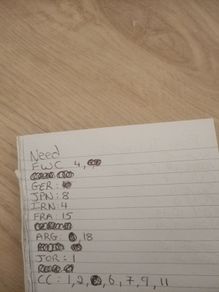 Need
FWC 4,
GER:
JPN: 8
IRN 4
FRA 15
ARG: , 18
JOR: 1
CC: 1, 2, 6, 7, 9, 11